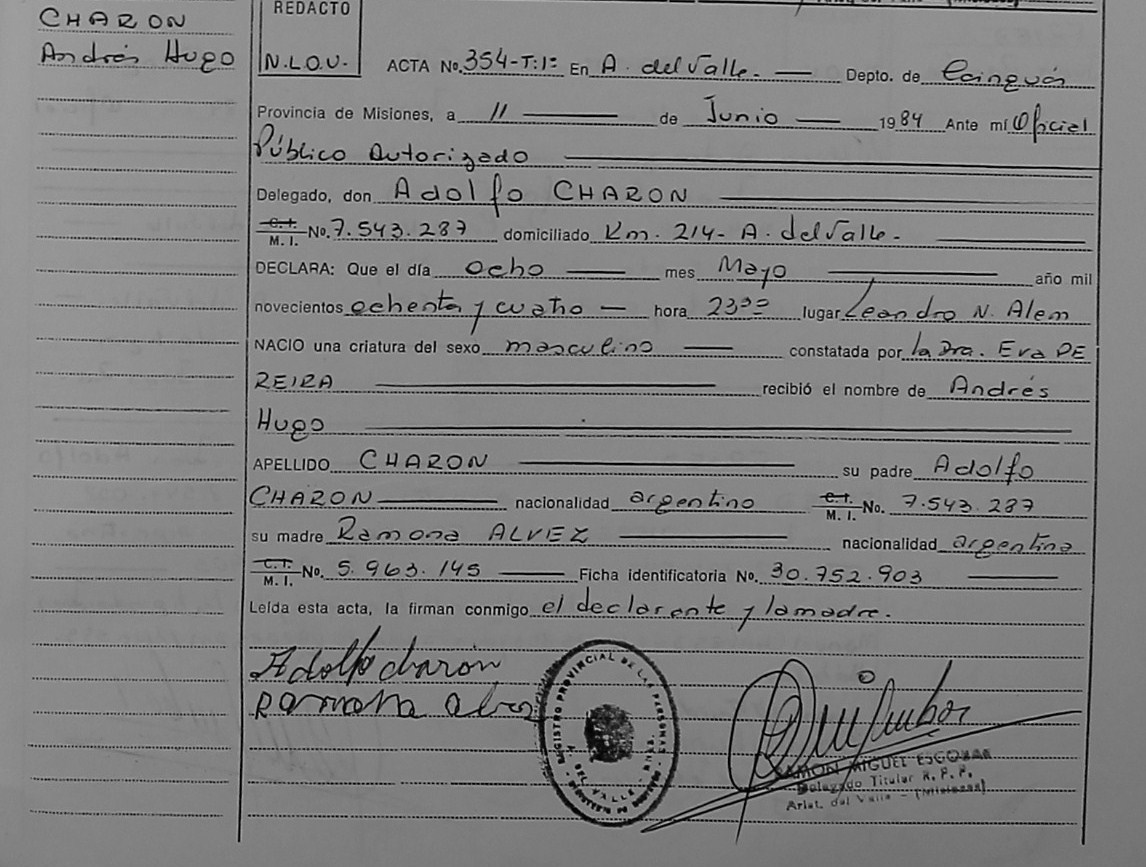 CHARON
Andrés Hugo
REDACTO
N.L.O.V.
ACTA No. 354-T:1º En A. del Valle. Depto. de Cainguás
Provincia de Misiones, a 11 de Junio 1984 Ante mí Oficial
Público Autorizado
Delegado, don Adolfo CHARON
C.I. M.I. No. 7.543.287 domiciliado Km. 214- A. del Valle.
DECLARA: Que el día ocho mes Mayo año mil
novecientos ochenta y cuatro hora 23ºº lugar Leandro N. Alem
NACIO una criatura del sexo masculino constatada por la Dra. Eva PE
REIRA recibió el nombre de Andrés
Hugo
APELLIDO CHARON su padre Adolfo
CHARON nacionalidad argentino C.I. M.I. No. 7.543.287
su madre Ramona ALVEZ nacionalidad argentina
C.I. M.I. No. 5.963.145 Ficha identificatoria No. 30.752.903
Leída esta acta, la firman conmigo el declarante y la madre.
Adolfo charón
Ramona
REGISTRO PROVINCIAL DE LAS PERSONAS
A. DEL VALLE
RAMON MIGUEL ESCOBAR
Delegado Titular R. P. P.
Arist. del Valle - (Misiones)